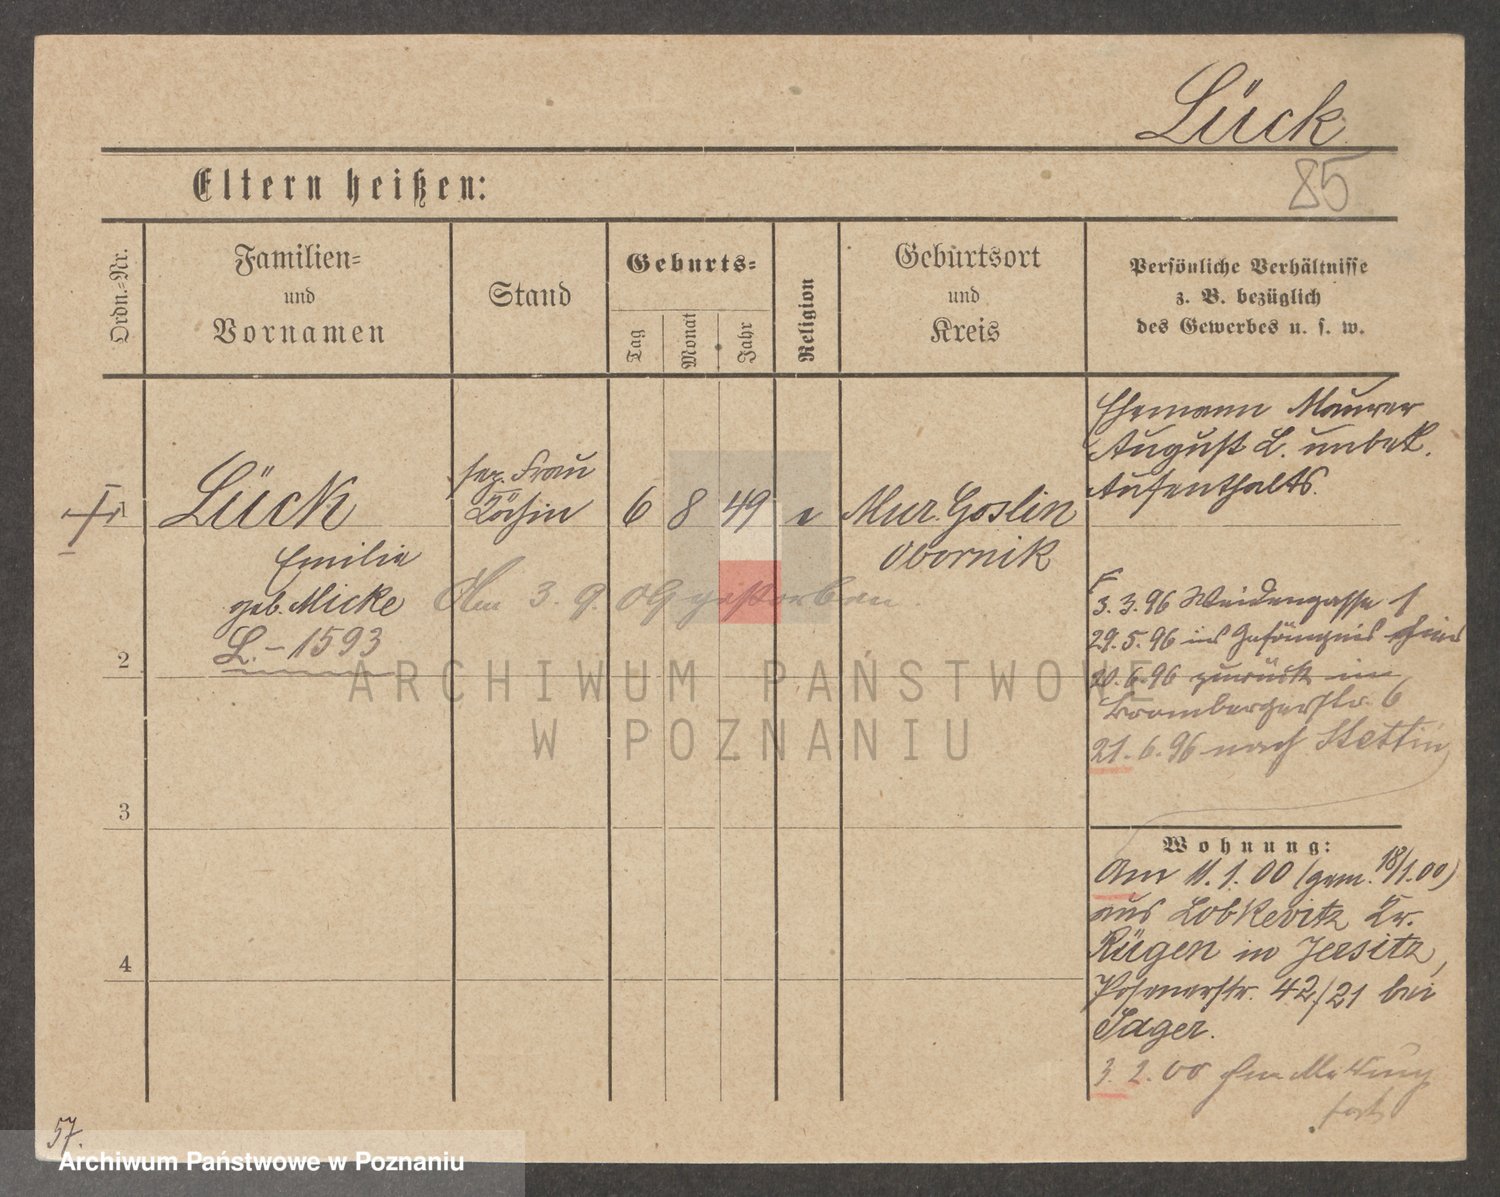 Lück
85
Eltern heißen:
Ordn.-Nr.
Familien-
und
Vornamen
Stand
Geburts-
Tag
Monat
Jahr
Religion
Geburtsort
und
Kreis
Persönliche Verhältnisse
z. B. bezüglich
des Gewerbes u. s. w.
1
Lück
Emilie
geb. Micke
L.-1593
sep. Frau
Köchin
6 8 49 e
Mur. Goslin
Obornik
Am 3. 9. 09 gestorben.
Ehemann Maurer
August L. unbek.
Aufenthalts.
3.3.96 Weidengasse 1
29.5.96 ins Gefängnis
20.6.96 zurück in
Brombergerstr. 6
21.6.96 nach Stettin
2
3
4
Wohnung:
Am 11.1.00 (gem. 18/1.00)
aus Lobkevitz Kr.
Rügen in Jersitz,
Posenerstr. 42/21 bei
Jager.
3.2.00 ohne Meldung
fort
57.
ARCHIWUM PAŃSTWOWE
W POZNANIU
Archiwum Państwowe w Poznaniu